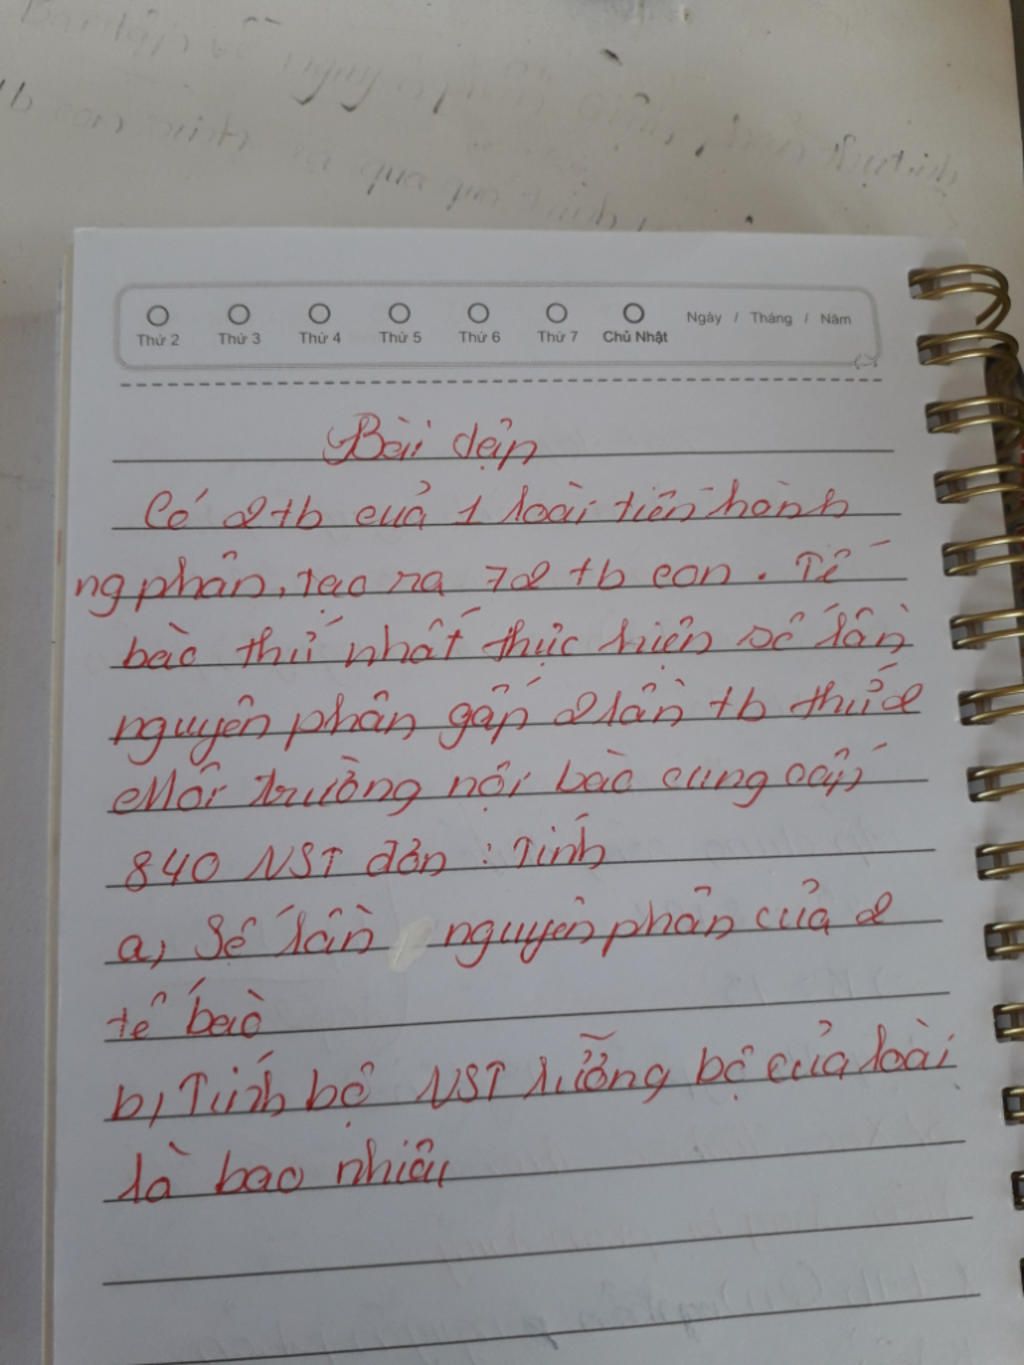 Thứ 2 Thứ 3 Thứ 4 Thứ 5 Thứ 6 Thứ 7 Chủ Nhật Ngày / Tháng / Năm
Bài dạn
Có 2 tb cuả 1 loài tiến hành
ng phân, tạo ra 72 tb con. Tế
bào thứ nhất thực hiện số lần
nguyên phân gấp 2 lần tb thứ 2
Môi trường nội bào cung cấp
840 NST đơn : Tính
a, Số lần nguyên phân của 2
tế bào
b, Tính bộ NST lưỡng bộ của loài
là bao nhiêu